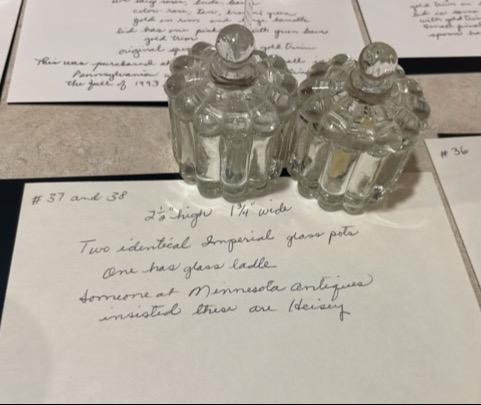 gold on rim and handle
lid has one pink with green
gold trim
original gold trim
This was purchased
Pennsylvania
the fall of 1993
# 36
# 37 and 38
2 1/2" high 1 3/4" wide
Two identical Imperial glass pots
One has glass ladle
Someone at Minnesota Antiques
insisted these are Heisey